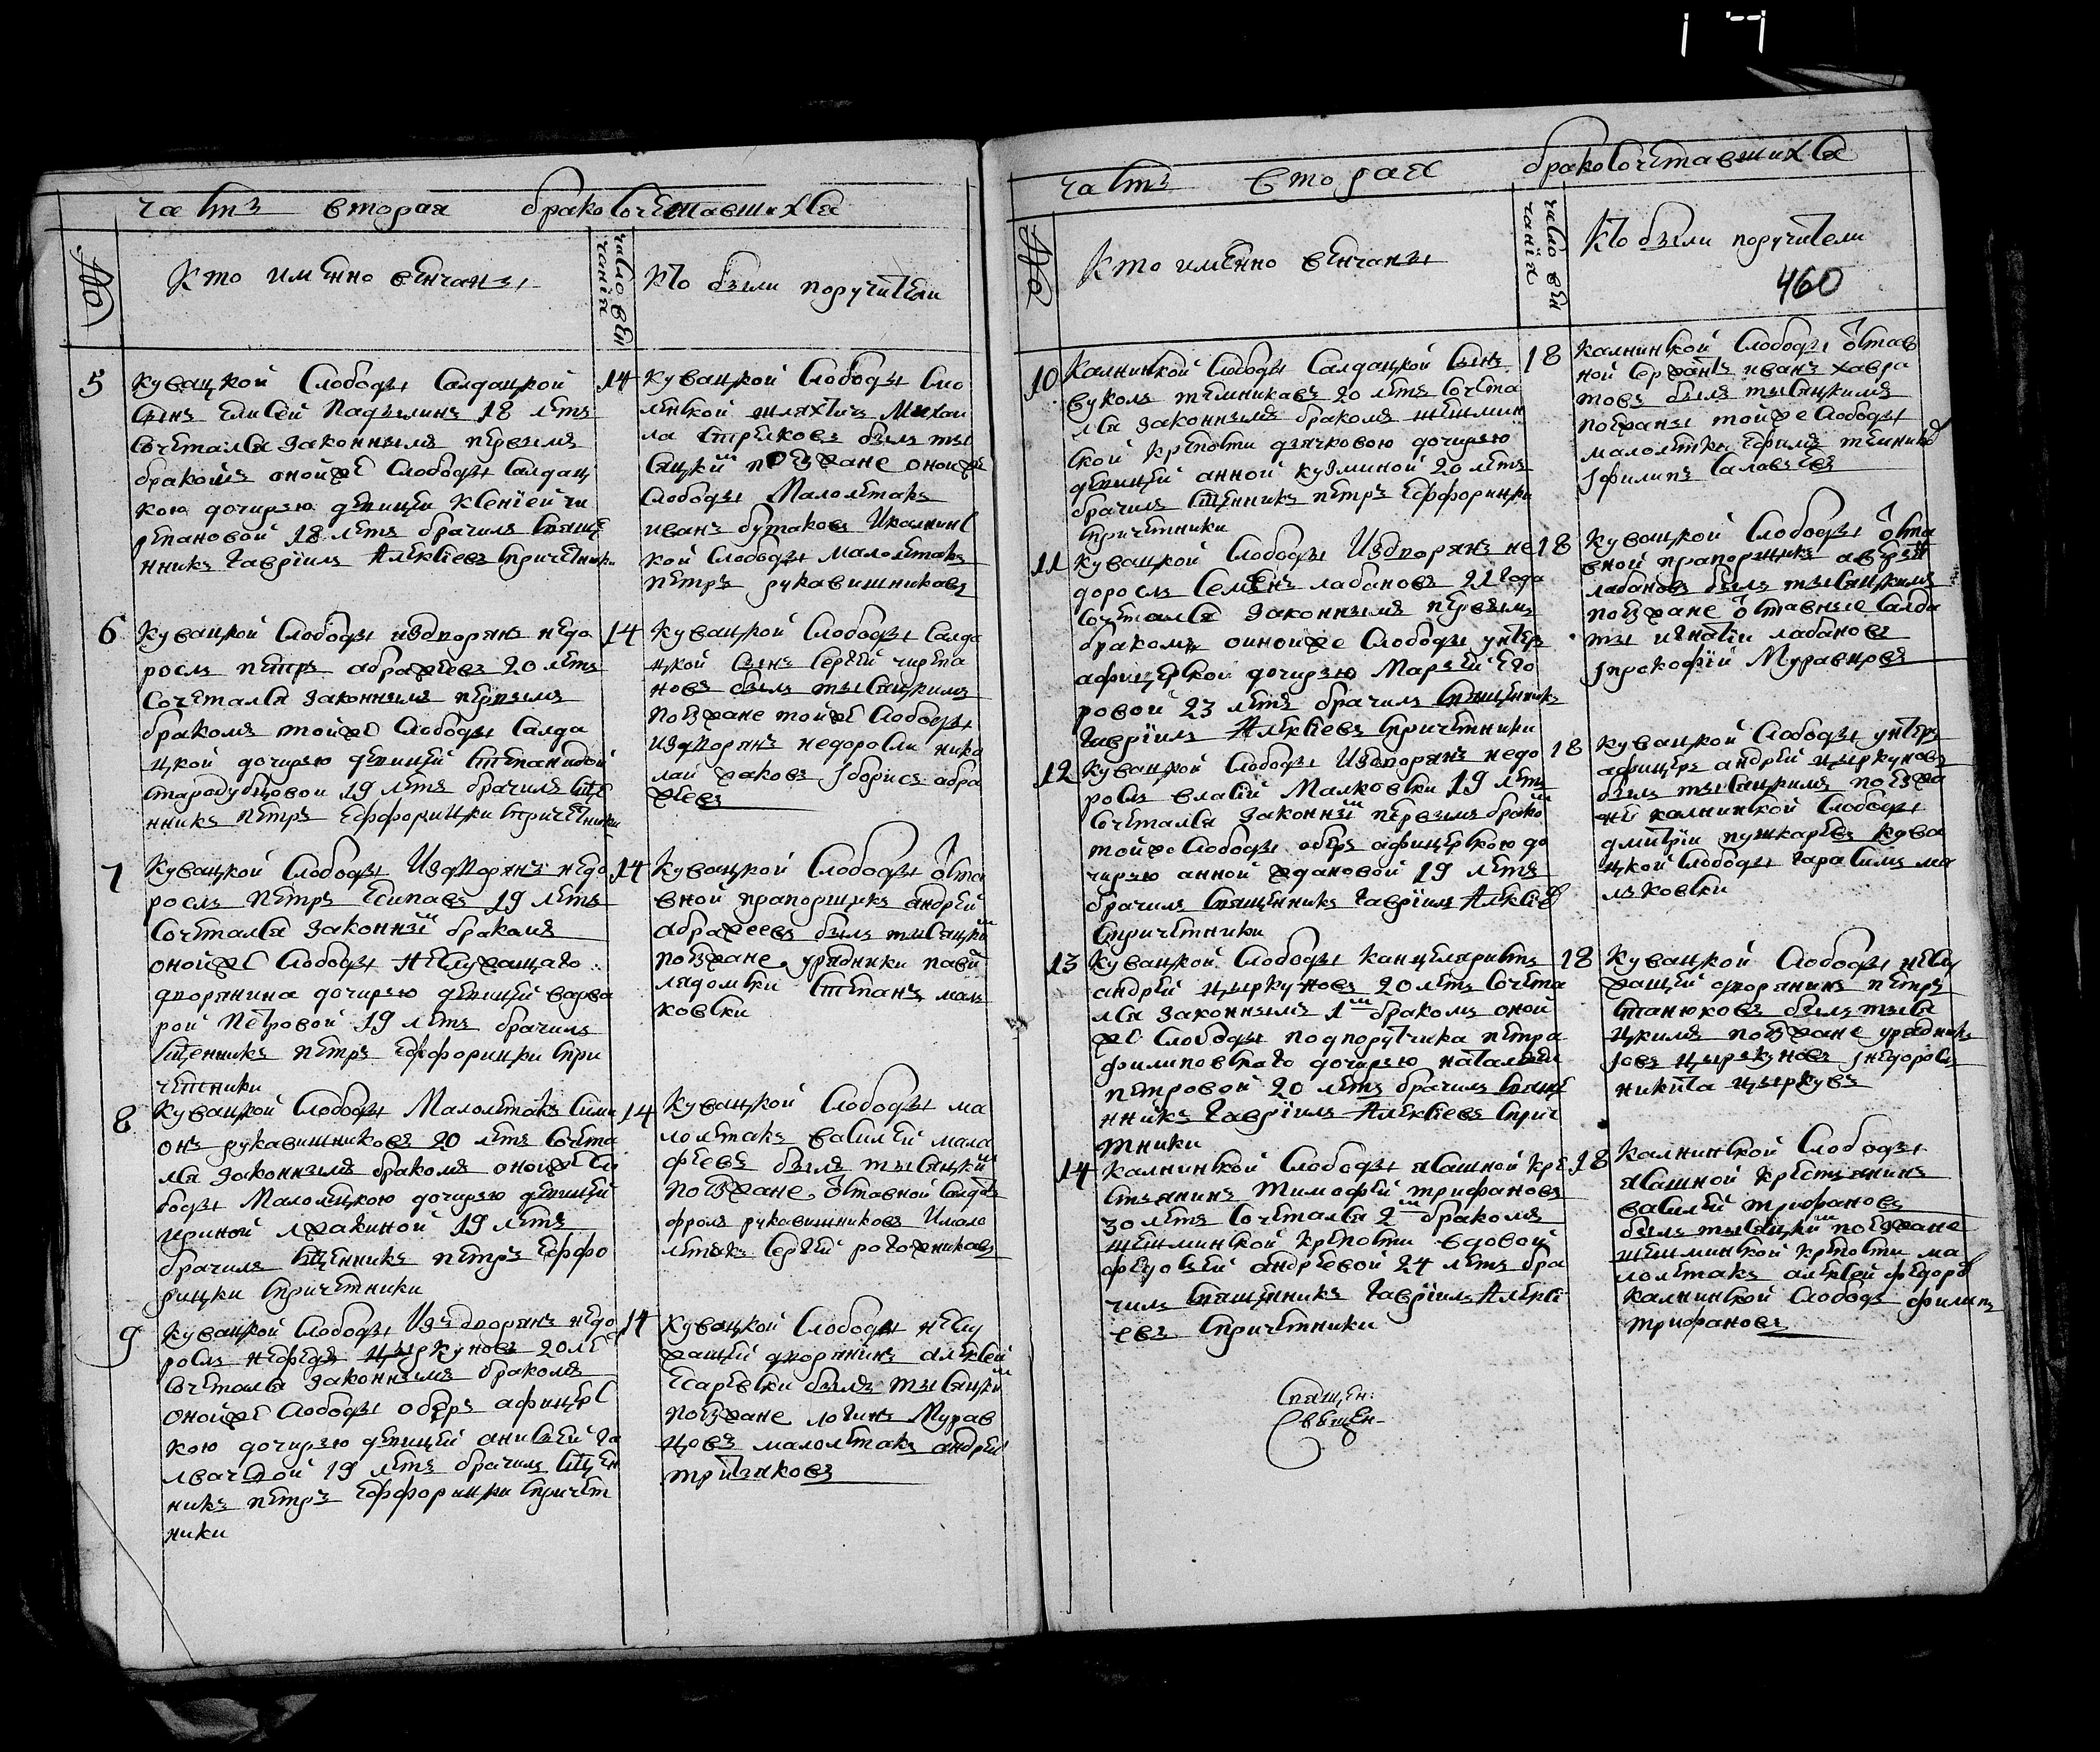 часть вторая бракосочетавшихся
№
Кто именно венчаны
число вен
чания
Кто были поручители
5
Кувацкой Слободы Салдацкой
сынъ Елисей 18 летъ
сочетался законнымъ первымъ
бракомъ онойже Слободы салдац
кою дочерью девицей Ксениейчи
репановой 18 летъ брачилъ свяще
нникъ Гаврїилъ Алексіевъ спричетники
14
Кувацкой Слободы смо
ленской шляхтичь Михаи
ла Стрелковъ былъ ты
сяцкий поезжане онойже
Слободы Малолетокъ
иванъ бутаковъ Икалинс
кой Слободы малолетокъ
петръ рукавишниковъ
6
Кувацкой Слободы издворянъ недо
росль петръ абражеевъ 20 летъ
Сочетался законнымъ первымъ
бракомъ тойже Слободы Салда
цкой дочерью девицей степанидой
стародубцовои 19 летъ брачилъ сще
нникъ Петръ Ефворицки спричетники
14
Кувацкой Слободы Салда
цкой сынъ Сергей чирепа
новъ былъ тысяцкимъ
поезжане тойже Слободы
издворянъ недоросли нико
лай раковъ їборисъ абра
жеевъ
7
Кувацкой Слободы Издворянъ недо
росль Петръ Есипавъ 19 летъ
Сочетался законны бракомъ
онойже Слободы неслужащаго
дворянина дочерью девицей варва
рой Петровой 19 летъ брачилъ
сщенникъ петръ Ефворицки спри
четники
14
Кувацкой Слободы отста
вной прапорщикъ андрей
абражеевъ былъ тысяцки
поезжане урядники
Степанъ маль
ковски
8
Кувацкой Слободы Малолетокъ Сими
онъ рукавишниковъ 20 летъ сочета
лся законнымъ бракомъ онойже сло
боды Малолецкою дочерью девицей
ириной 19 летъ
брачилъ сщенникъ петръ Ефво
рицки спричетники
14
Кувацкой Слободы ма
лолетокъ василей мала
феевъ былъ тысяцки
поезжане отставной салдатъ
фролъ рукавишниковъ Имало
летокъ Сергей рогожниковъ
9
Кувацкой Слободы Издворянъ недо
росль нефедъ цыркуновъ 20 ле
сочетался законнымъ бракомъ
онойже Слободы оберъ афицерс
кою дочерью девицей анисьей га
19 летъ брачилъ сщен
никъ петръ Ефворицки спричет
ники
14
Кувацкой Слободы неслу
жащей дворянинъ алексей
былъ тысяцки
поезжане логинъ Мурав
цовъ малолетокъ андрей
третьяковъ
часть вторая бракосочетавшихся
№
Кто именно венчаны
число вен
чания
Кто были поручители
460
10
Калинской Слободы Салдацкой сынъ
вуколъ темниковъ 20 летъ сочета
лся законнымъ бракомъ шешмин
ской крепости дьячковою дочерью
девицей анной кузминой 20 летъ
брачилъ сщенникъ петръ Ефворицки
спричетники
18
Калинской Слободы отстав
ной сержантъ иванъ хавра
товъ былъ тысяцкимъ
поезжаны тойже слободы
малолетки Ефимъ темников
їфилипъ Саловьевъ
11
Кувацкой Слободы Издворянъ не
доросль Семенъ лабановъ 22 года
сочетался законнымъ первымъ
бракомъ онойже Слободы унтеръ
афицерской дочерью Марьей Его
ровой 23 летъ брачилъ священникъ
Гаврїилъ Алексіевъ спричетники
18
Кувацкой Слободы отста
вной прапорщикъ
лабановъ былъ тысяцкимъ
поезжане отставные салда
ты игнатіи лабановъ
їпрокофїй Муравцовъ
12
Кувацкой Слободы Издворянъ недо
росль власїй Малковски 19 летъ
сочетался законны первымъ брако
тойже Слободы оберъ афицерскою до
черью анной ждановой 19 летъ
брачилъ священникъ Гаврїилъ Алексіев
спричетники
18
Кувацкой Слободы унтеръ
афицеръ андрей цыркуновъ
былъ тысяцкимъ поезжа
не калинской Слободы
дмитрїй пушкаревъ кува
цкой слободы Гарасимъ ма
льковски
13
Кувацкой Слободы Канцеляристъ
андрей цыркуновъ 20 летъ сочета
лся законнымъ 1м бракомъ оной
же Слободы подпорутчика петра
филиповскаго дочерью наталией
петровой 20 летъ брачилъ свяще
нникъ Гаврїилъ Алексіевъ сприче
тники
18
Кувацкой Слободы неслу
жащей дворянинъ петръ
станюковъ былъ тыся
цкимъ поезжане урядникъ
цыркуновъ їнедоросль
никита цыркувъ
14
Калинской Слободы ясашной кре
стьянинъ тимофей трифановъ
30 летъ сочетался 2м бракомъ
шешминской крепости вдовой
федосьей андреевой 24 летъ бра
чилъ священникъ Гаврїилъ Алексі
евъ спричетники
18
Калинской Слободы
ясашной крестьянинъ
василей трифановъ
былъ тысяцки поезжане
шешминской крепости ма
лолетокъ алексей федоров
калинской Слободы филипъ
трифановъ
Священ:
Священ-